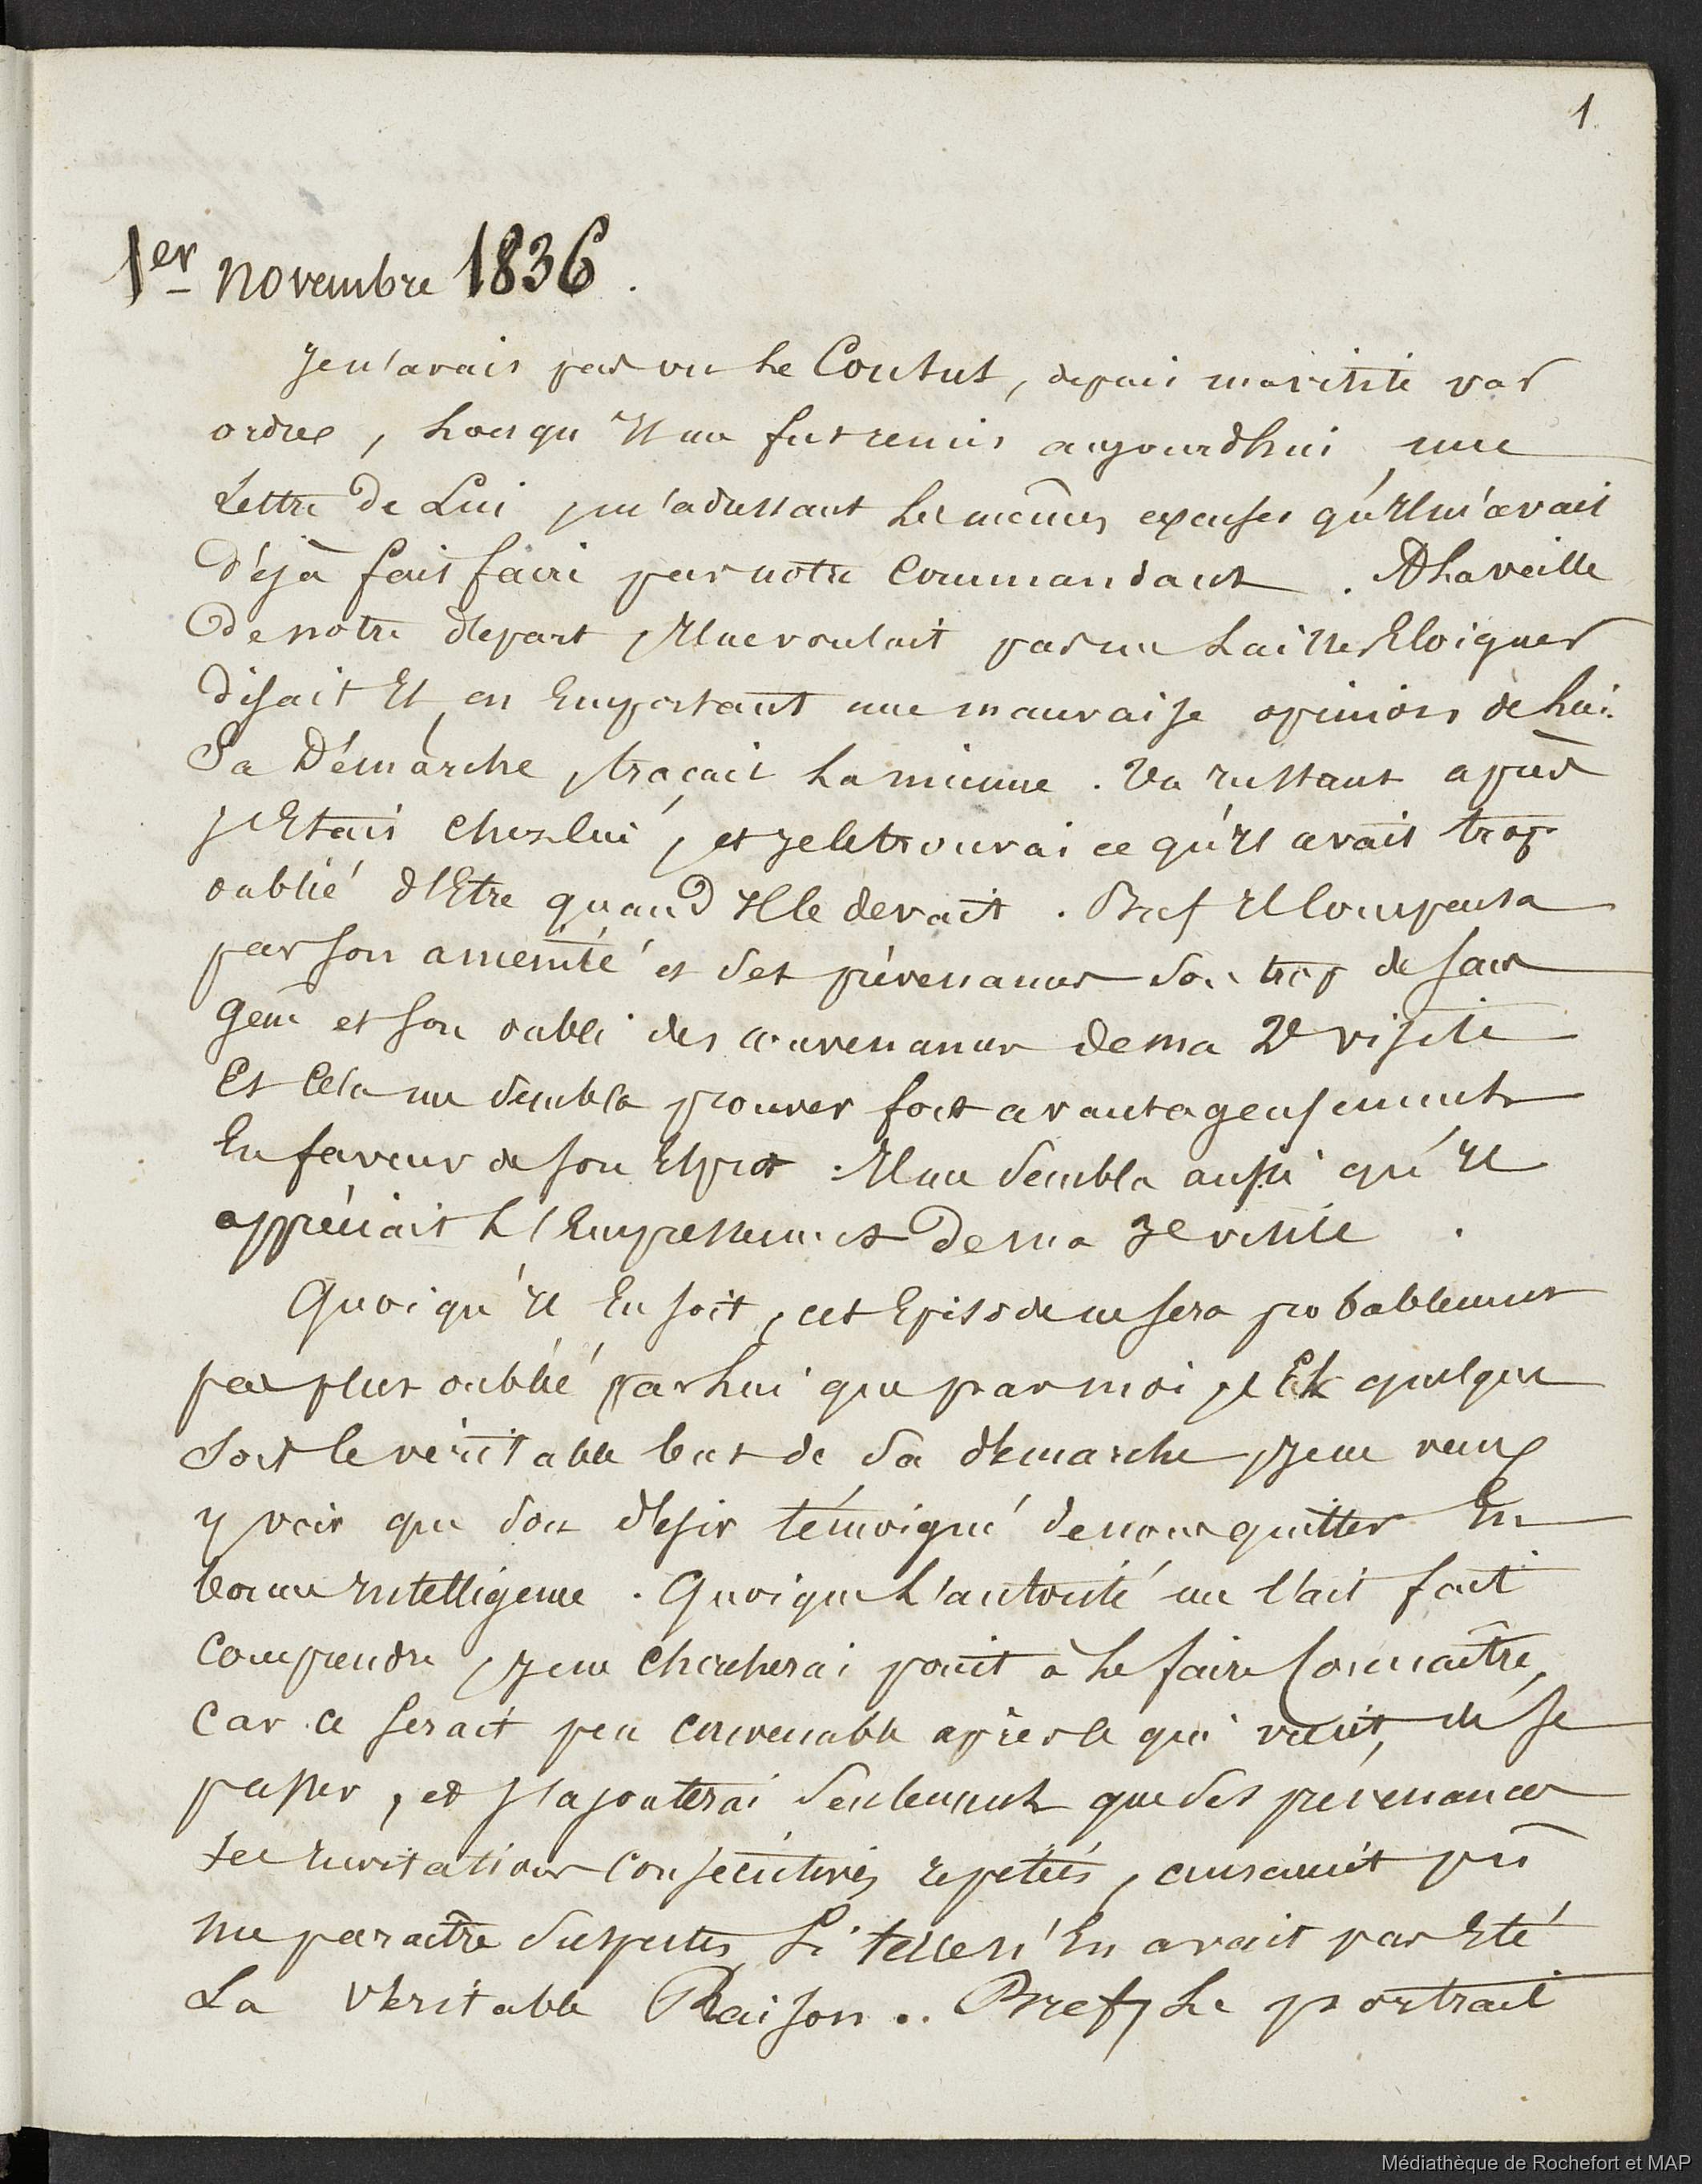 1
1er novembre 1836.
Je n'avais pas vu Le Consul, depuis ma visite par
ordre, Lorsqu'Il me fut remis aujourdhui une
Lettre De Lui, m'adressant Les mêmes excuses qu'Il m'avait
Déjà fait faire par notre Commandant. A La veille
De notre départ, Il ne voulait pas me Laisser Eloigner
Disait Il, en Emportant une mauvaise opinion de Lui.
Sa Démarche, traçait La mienne. Un Instant après
j'Etais chez lui, et Je le trouvai ce qu'Il avait trop
oublié d'Etre quand Il le devait. Bref Il Compensa
par son amenité et ses prévenances son trop de sans
gêne et son oubli des convenances De ma 2e visite
Et Cela me sembla prouver fort avantageusement
En faveur de son Esprit. Il me sembla aussi qu'Il
appréciait L'Empressement De ma 3e visite.
Quoi qu'Il En soit, cet Episode ne sera probablement
pas plus oublié par Lui que par moi, Et quelque
soit le véritable but de sa démarche, Je ne veux
y voir que son désir témoigné de nous quitter En
bonne Intelligence. Quoique L'autorité me l'ait fait
Comprendre, Je ne chercherai point à Le faire Connaître,
Car ce serait peu convenable après ce qui vient, de se
passer, et J'ajouterai seulement que ses prévenances
ses Invitations Consécutives repetées, auraient pu
me paraître suspectes, Si telle n'En avait pas Eté
La véritable Raison.. Bref, Le portrait
Médiathèque de Rochefort et MAP